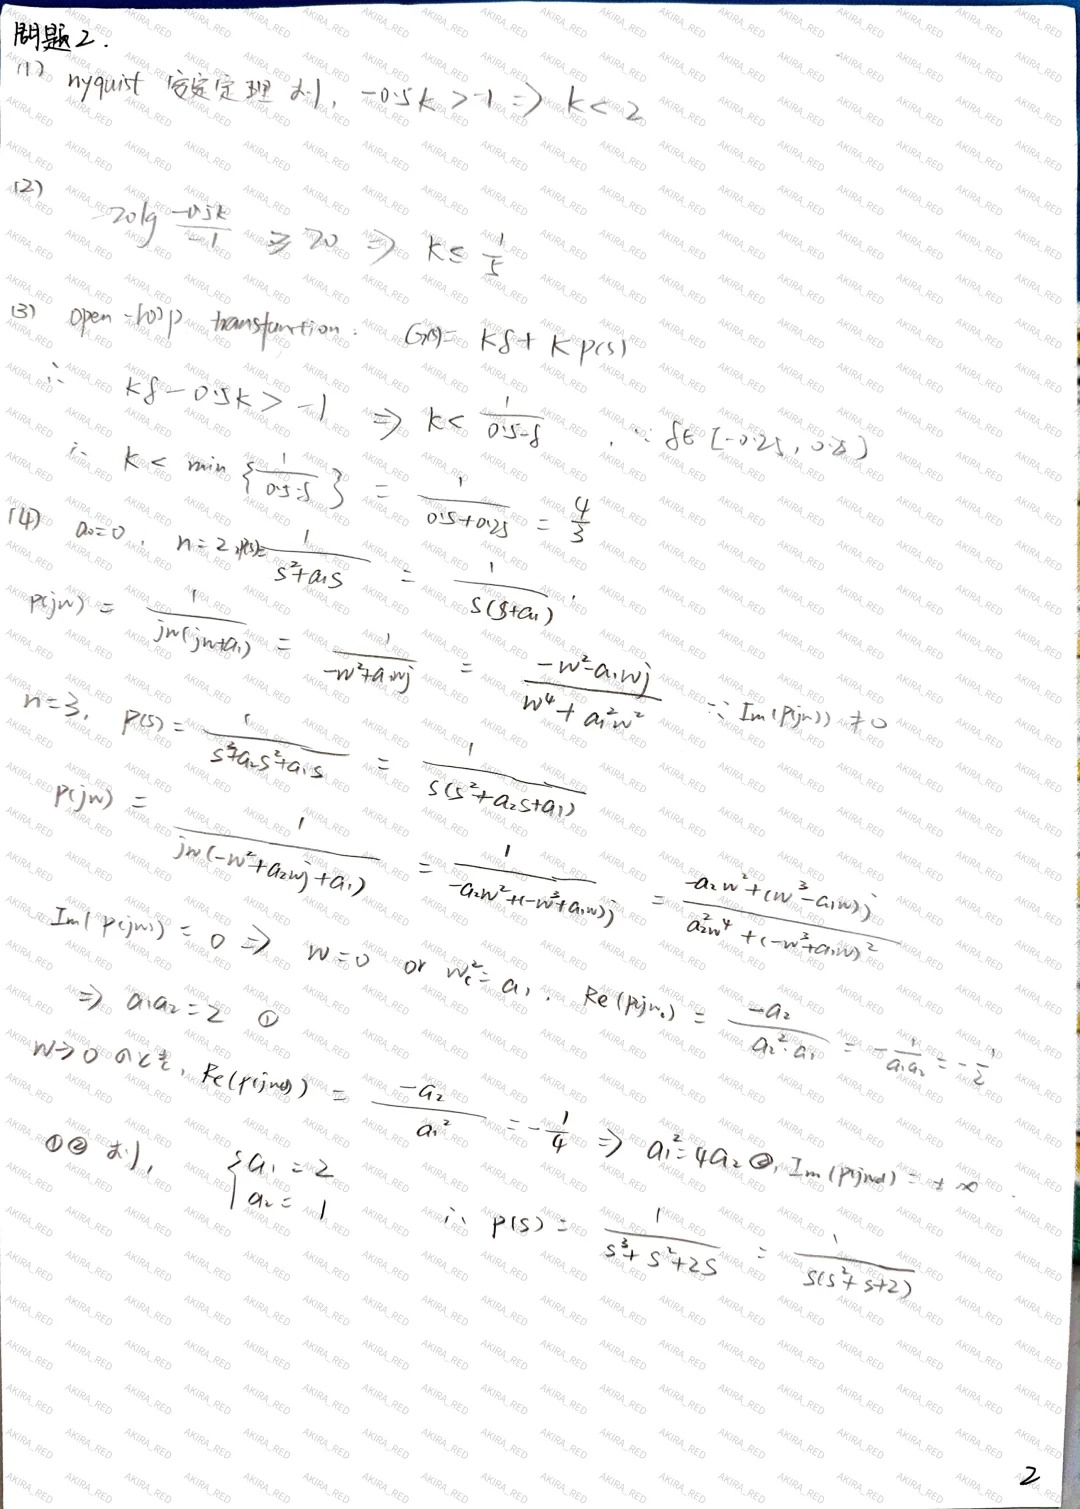 問題2.
(1) nyquist 安定定理より, -0.5k > -1 ⇒ k < 2
(2) -20lg (-0.5k)/(-1) ≥ 20 ⇒ k ≤ 1/5
(3) open-loop transfunction: G(s) = kδ + k p(s)
∴ kδ - 0.5k > -1 ⇒ k < 1/(0.5-δ), ∵ δ∈[-0.25, 0.25]
∴ k < min {1/(0.5-δ)} = 1/(0.5+0.25) = 4/3
(4) a₀=0, n=2, p(s)= 1/(s²+a₁s) = 1/(s(s+a₁)).
P(jw) = 1/(jw(jw+a₁)) = 1/(-w²+a₁wj) = (-w²-a₁wj)/(w⁴+a₁²w²) ∵ Im(P(jw)) ≠ 0
n=3, P(s) = 1/(s³+a₂s²+a₁s) = 1/(s(s²+a₂s+a₁))
P(jw) = 1/(jw(-w²+a₂wj+a₁)) = 1/(-a₂w²+(-w³+a₁w)j) = (-a₂w²+(w³-a₁w)j)/(a₂²w⁴+(-w³+a₁w)²)
Im(P(jw)) = 0 ⇒ w=0 or w_c²=a₁. Re(P(jw_c)) = -a₂/(a₂²·a₁) = -1/(a₁a₂) = -1/2
⇒ a₁a₂=2 ①
w→0 のとき, Re(P(jw)) = -a₂/a₁² = -1/4 ⇒ a₁²=4a₂ ②, Im(P(jw)) = ±∞.
①② より, { a₁ = 2
a₂ = 1 ∴ P(s) = 1/(s³+s²+2s) = 1/(s(s²+s+2))
2
AKIRA_RED